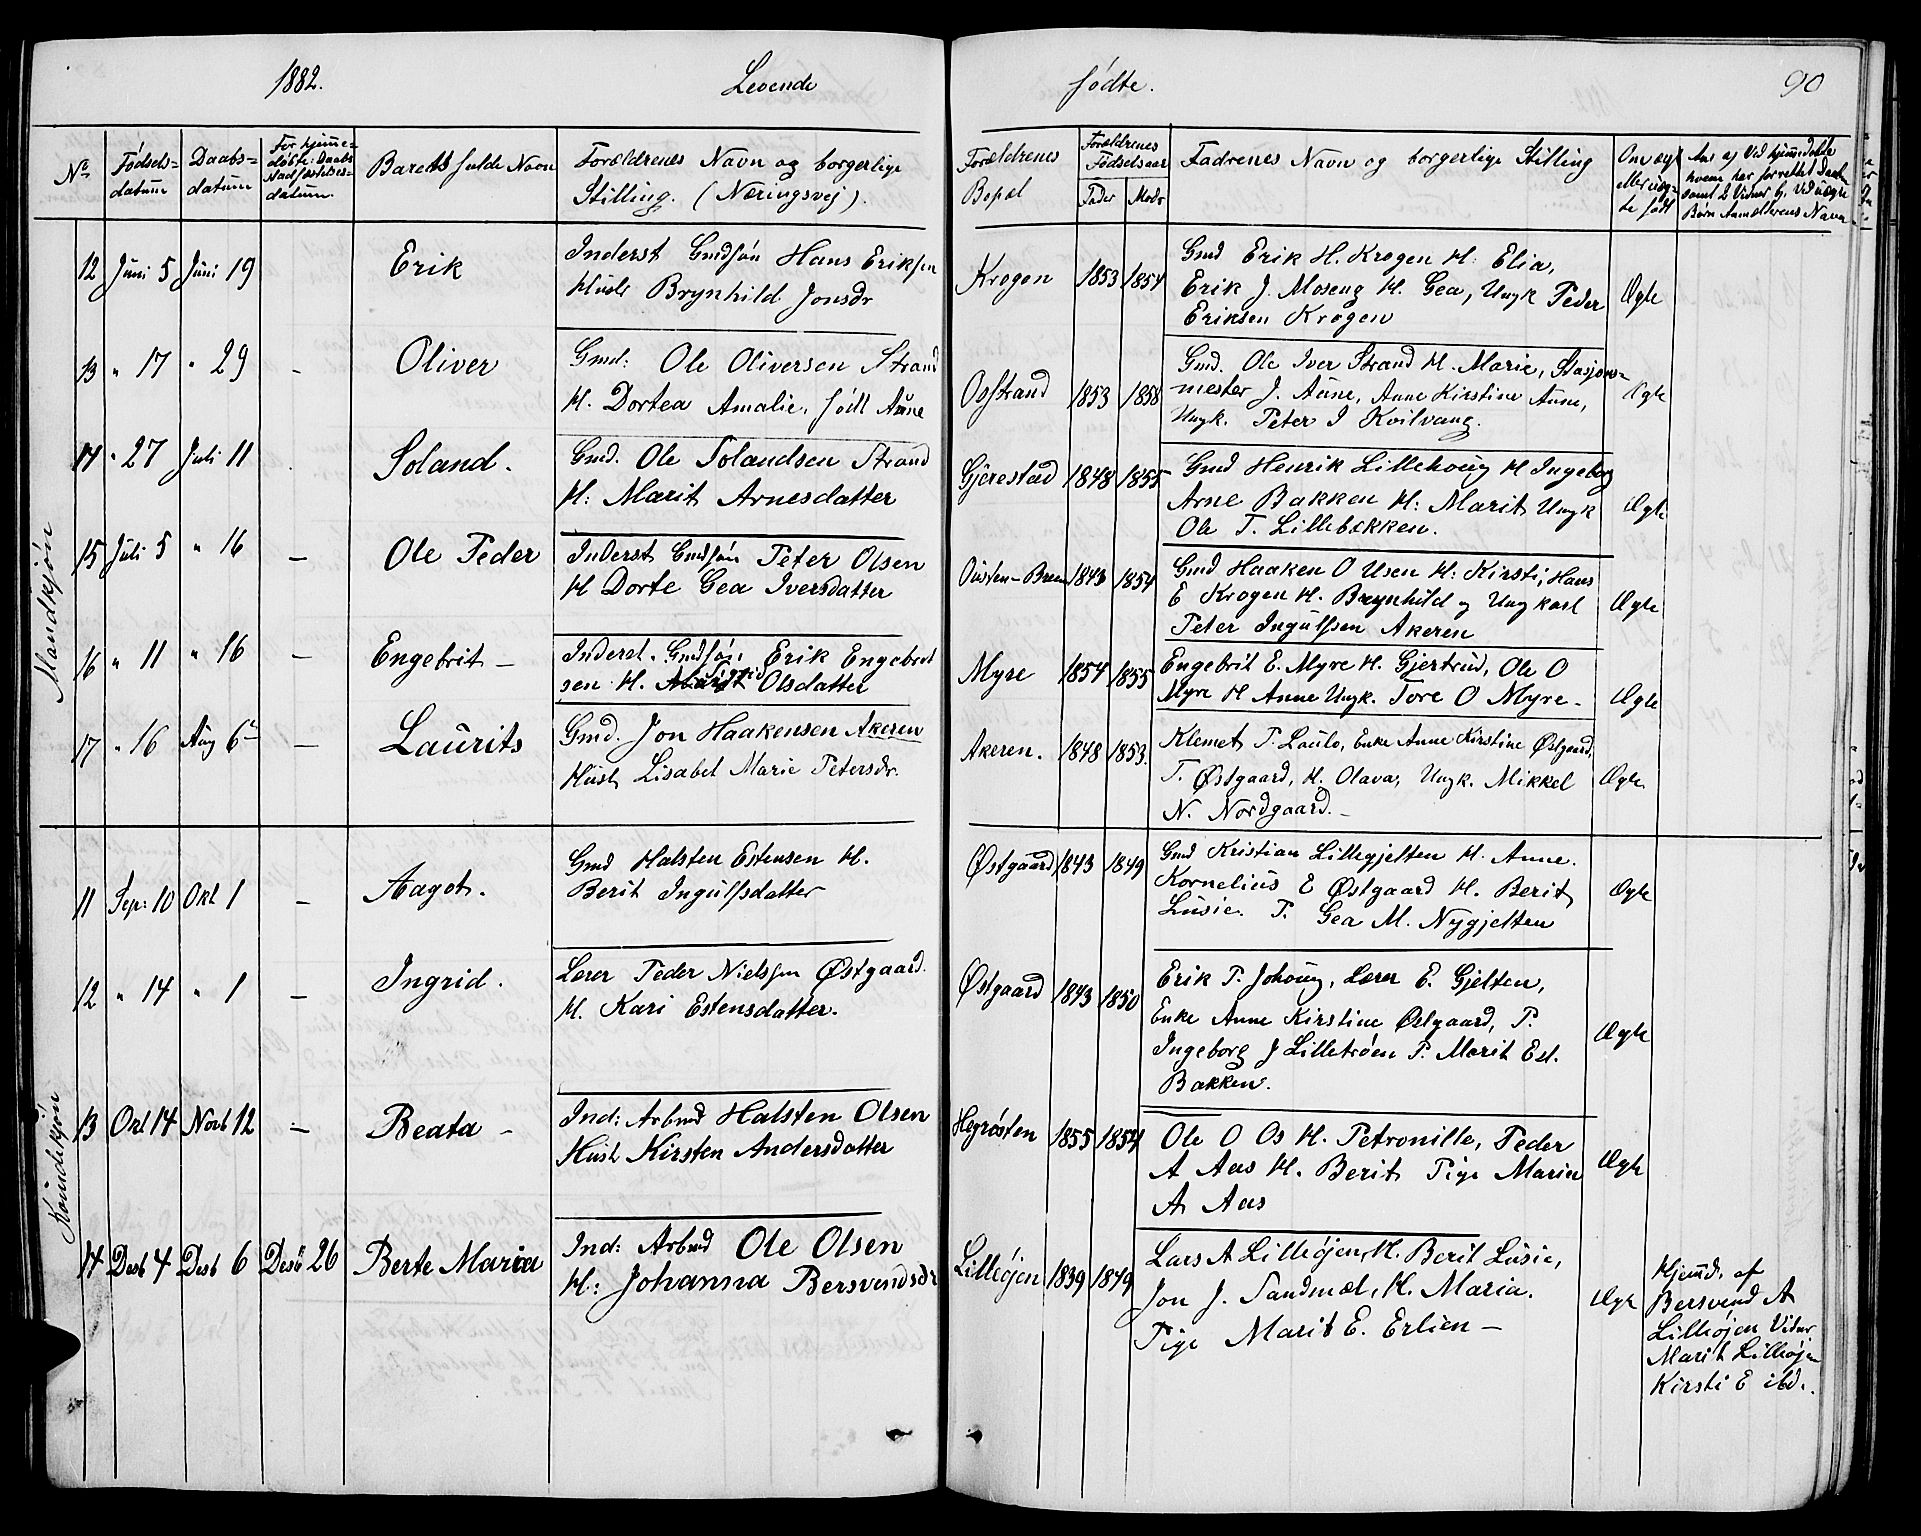 1882. Levende fødte. 90
No. Fødsels-datum Daabs-datum For hjemme-døbte: Daabs Stadfæstelses-datum. Barnets fulde Navn Forældrenes Navn og borgerlige Stilling. (Næringsvej).
Forældrenes Bopæl Forældrenes Fødselsaar Fader Moder Fadrenes Navn og borgerlige Stilling Om ægte eller uægte født
Mandkjøn
12 Juni 5 Juni 19 Erik
Inderst Gmdsøn Hans Eriksen
Hustr Brynhild Jonsdr
Krogen 1853 1854
Gmd Erik H. Krogen H. Elia,
Erik J. Moseng H. Gea, Ungk Peder
Eriksen Krogen
Ægte
13 " 17 " 29 - Oliver
Gmd: Ole Oliversen Strand
H. Dortea Amalie, født Aune
Osstrand 1853 1858
Gmd. Ole Iver Strand H. Marie, Stasjons-
mester J. Aune, Anne Kirstine Aune,
Ungk. Peter J Kvilvang.
Ægte
14 " 27 Juli 11 Soland.
Gmd. Ole Solandsen Strand
H: Marit Arnesdatter
Gjerestad 1848 1855
Gmd Henrik Lillehoug H Ingeborg
Arne Bakken H: Marit, Ungk
Ole T. Lillebekken.
Ægte
15 Juli 5 " 16 - Ole Peder
Inderst Gmdsøn Peter Olsen
H Dorte Gea Iversdatter
1843 1854
Gmd Haaken O Usen H: Kirsti, Hans
E Krogen H. Brynhild og Ungkarl
Peter Ingulfsen Akeren
Ægte
16 " 11 " 16 - Engebrit -
Inderst. Gmdsøn, Erik Engebret
sen H. Olsdatter
Myre 1854 1855
Engebrit E. Myre H. Gjertrud, Ole O
Myre H Anne Ungk. Tore O Myre -
Ægte
17 " 16 Aug 6 - Laurits
Gmd. Jon Haakensen Akeren
Hust Lisabet Marie Petersdr.
Akeren. 1848 1853.
Klemet P. Laulo, Enke Anne Kirstine Østgaard,
T. Østgaard, H. Olava, Ungk. Mikkel
N. Nordgaard. -
Ægte.
Kvindekjøn
11 Sep: 10 Okt 1 - Aagot.
Gmd Halsten Estensen H.
Berit Ingulfsdatter
Østgaard 1843 1849
Gmd Kristian Lillegjelten H. Anne.
Kornelius E Østgaard H. Berit
Lusie. P. Gea M. Nygjelten
Ægte
12 " 14 " 1 - Ingrid.
Lærer Peder Nielsen Østgaard.
H. Kari Estensdatter.
Østgaard 1843 1850
Erik P. Johoug, Lærer E. Gjelten,
Enke Anne Kirstine Østgaard, P.
Ingeborg J Lilletrøen P. Marit Est.
Bakken.
Ægte
13 Okt 14 Novb 12 - Beata -
Ind: Arbmd Halsten Olsen
Hust Kirsten Andersdatter
Hegrøsten 1855 1854
Ole O Os H. Petronille, Peder
A Aas H. Berit, Pige Marie
A Aas
Ægte
14 Desb 4 Desb 6 Desb 26 Berte Maria
Ind: Arbmd Ole Olsen
H.: Johanna Bersvendsdr
Lilleøjen 1839 1849
Lars A Lilleøjen, H. Berit Lusie,
Jon J. Tandmæl, H. Maria.
Pige Marit E. Erlien -
Ægte
Hjemd. af
Bersvend A
Lilleøjen Vidner
Marit Lilleøjen
Kirsti E ibd.